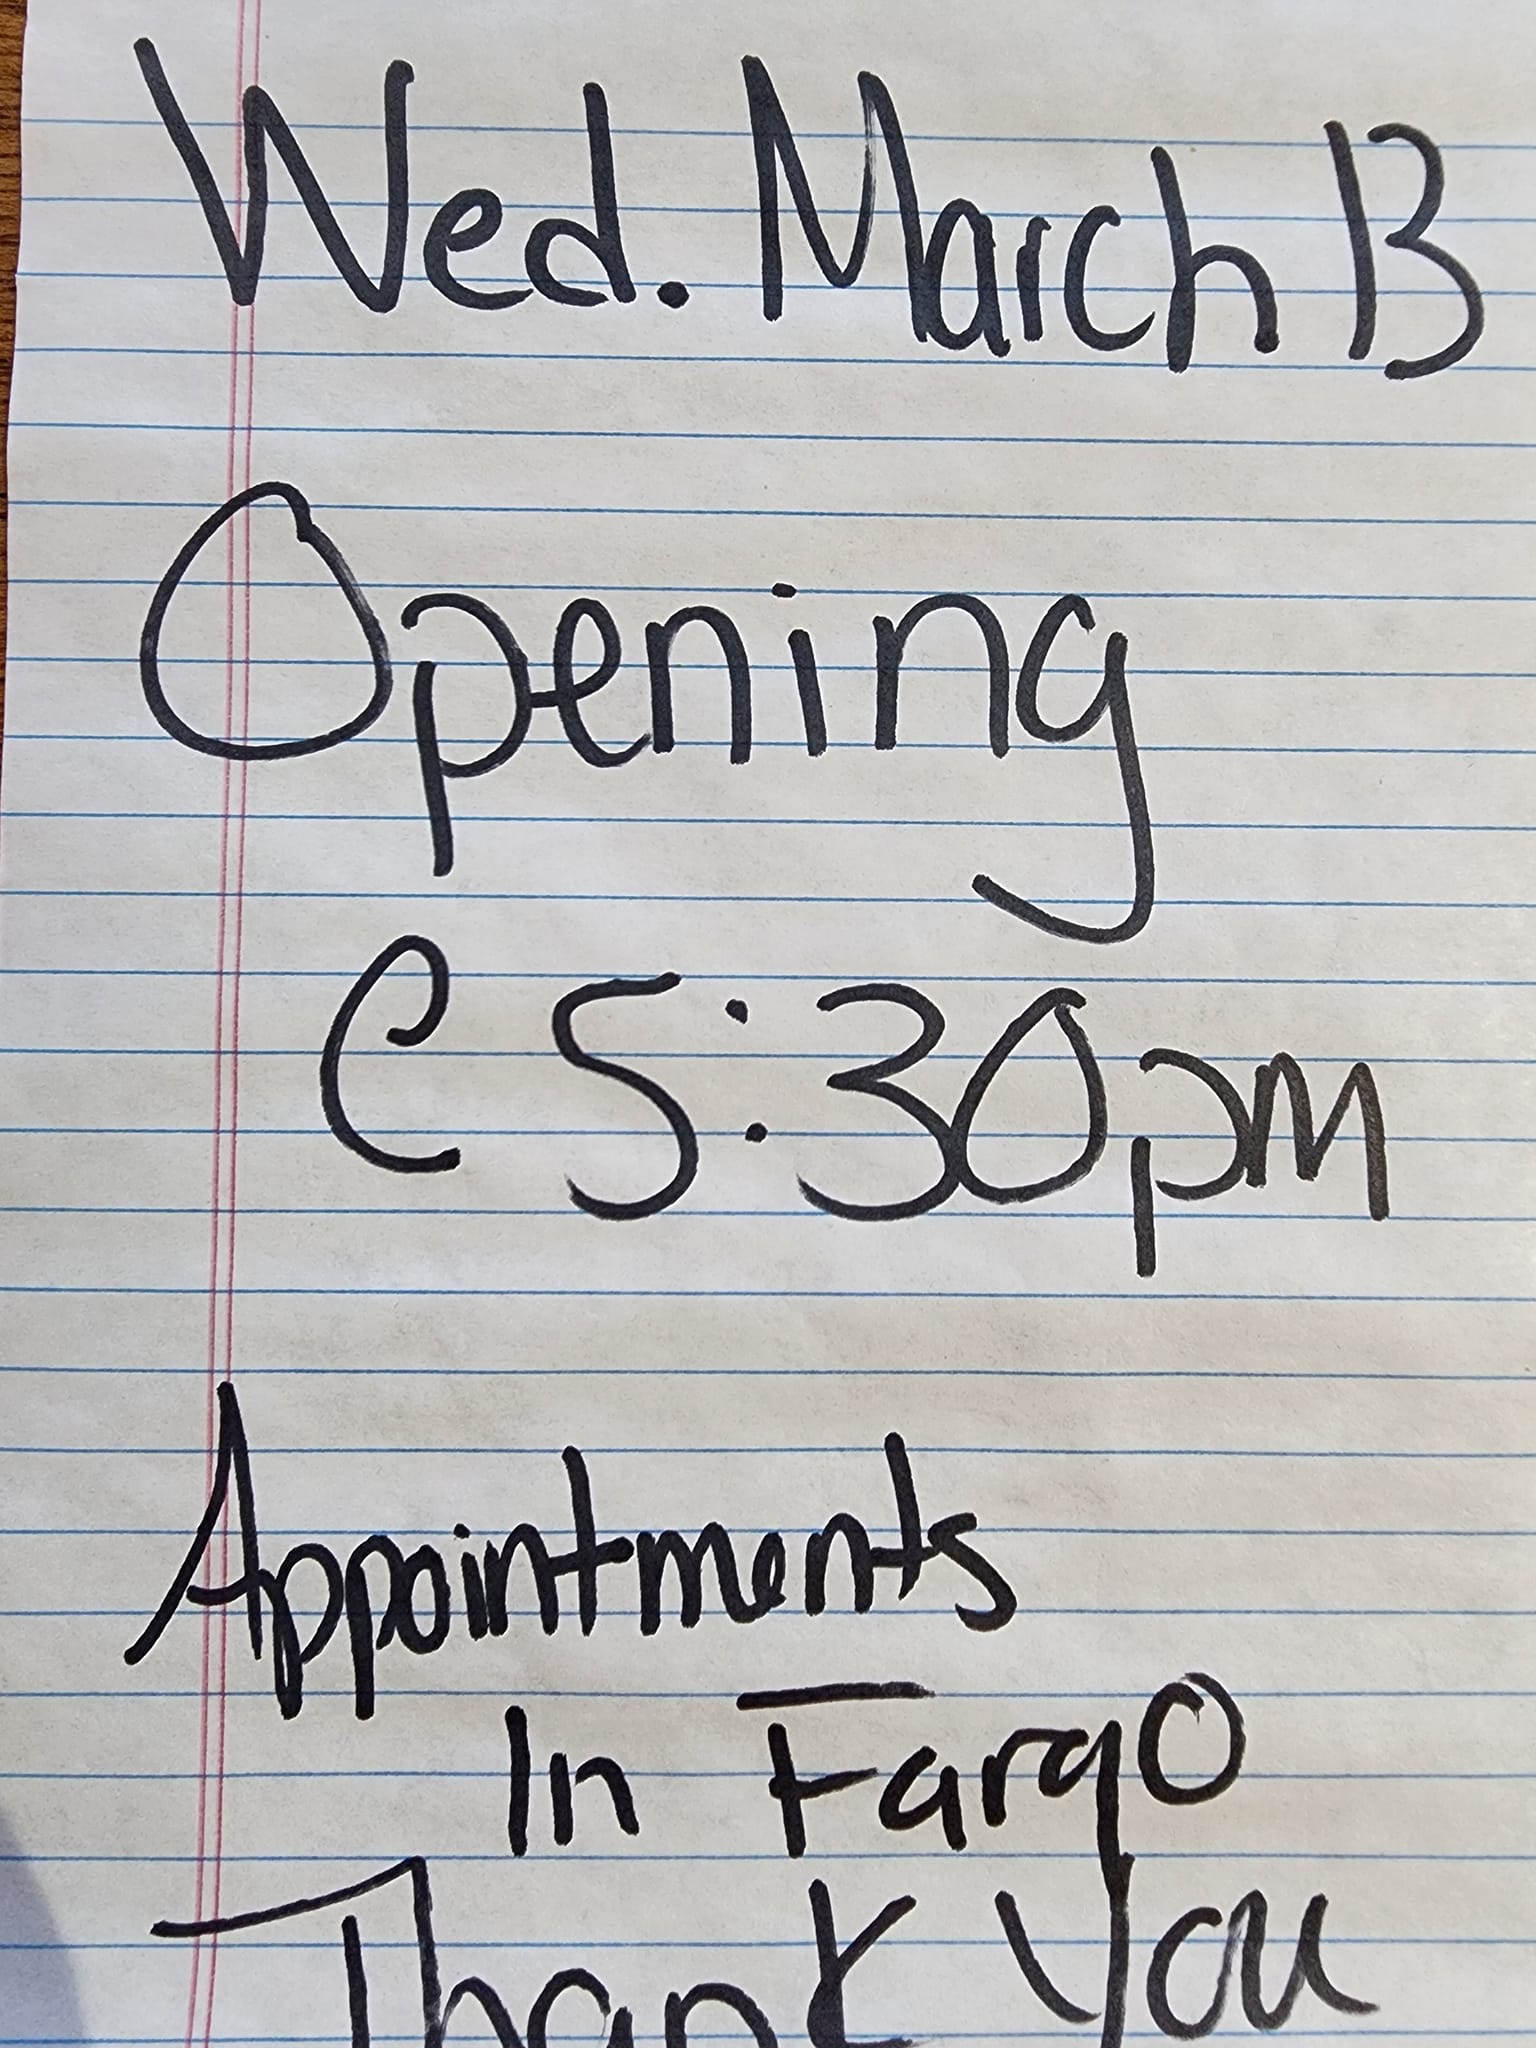 Wed. March 13
Opening
@ 5:30pm
Appointments
In Fargo
Thank You